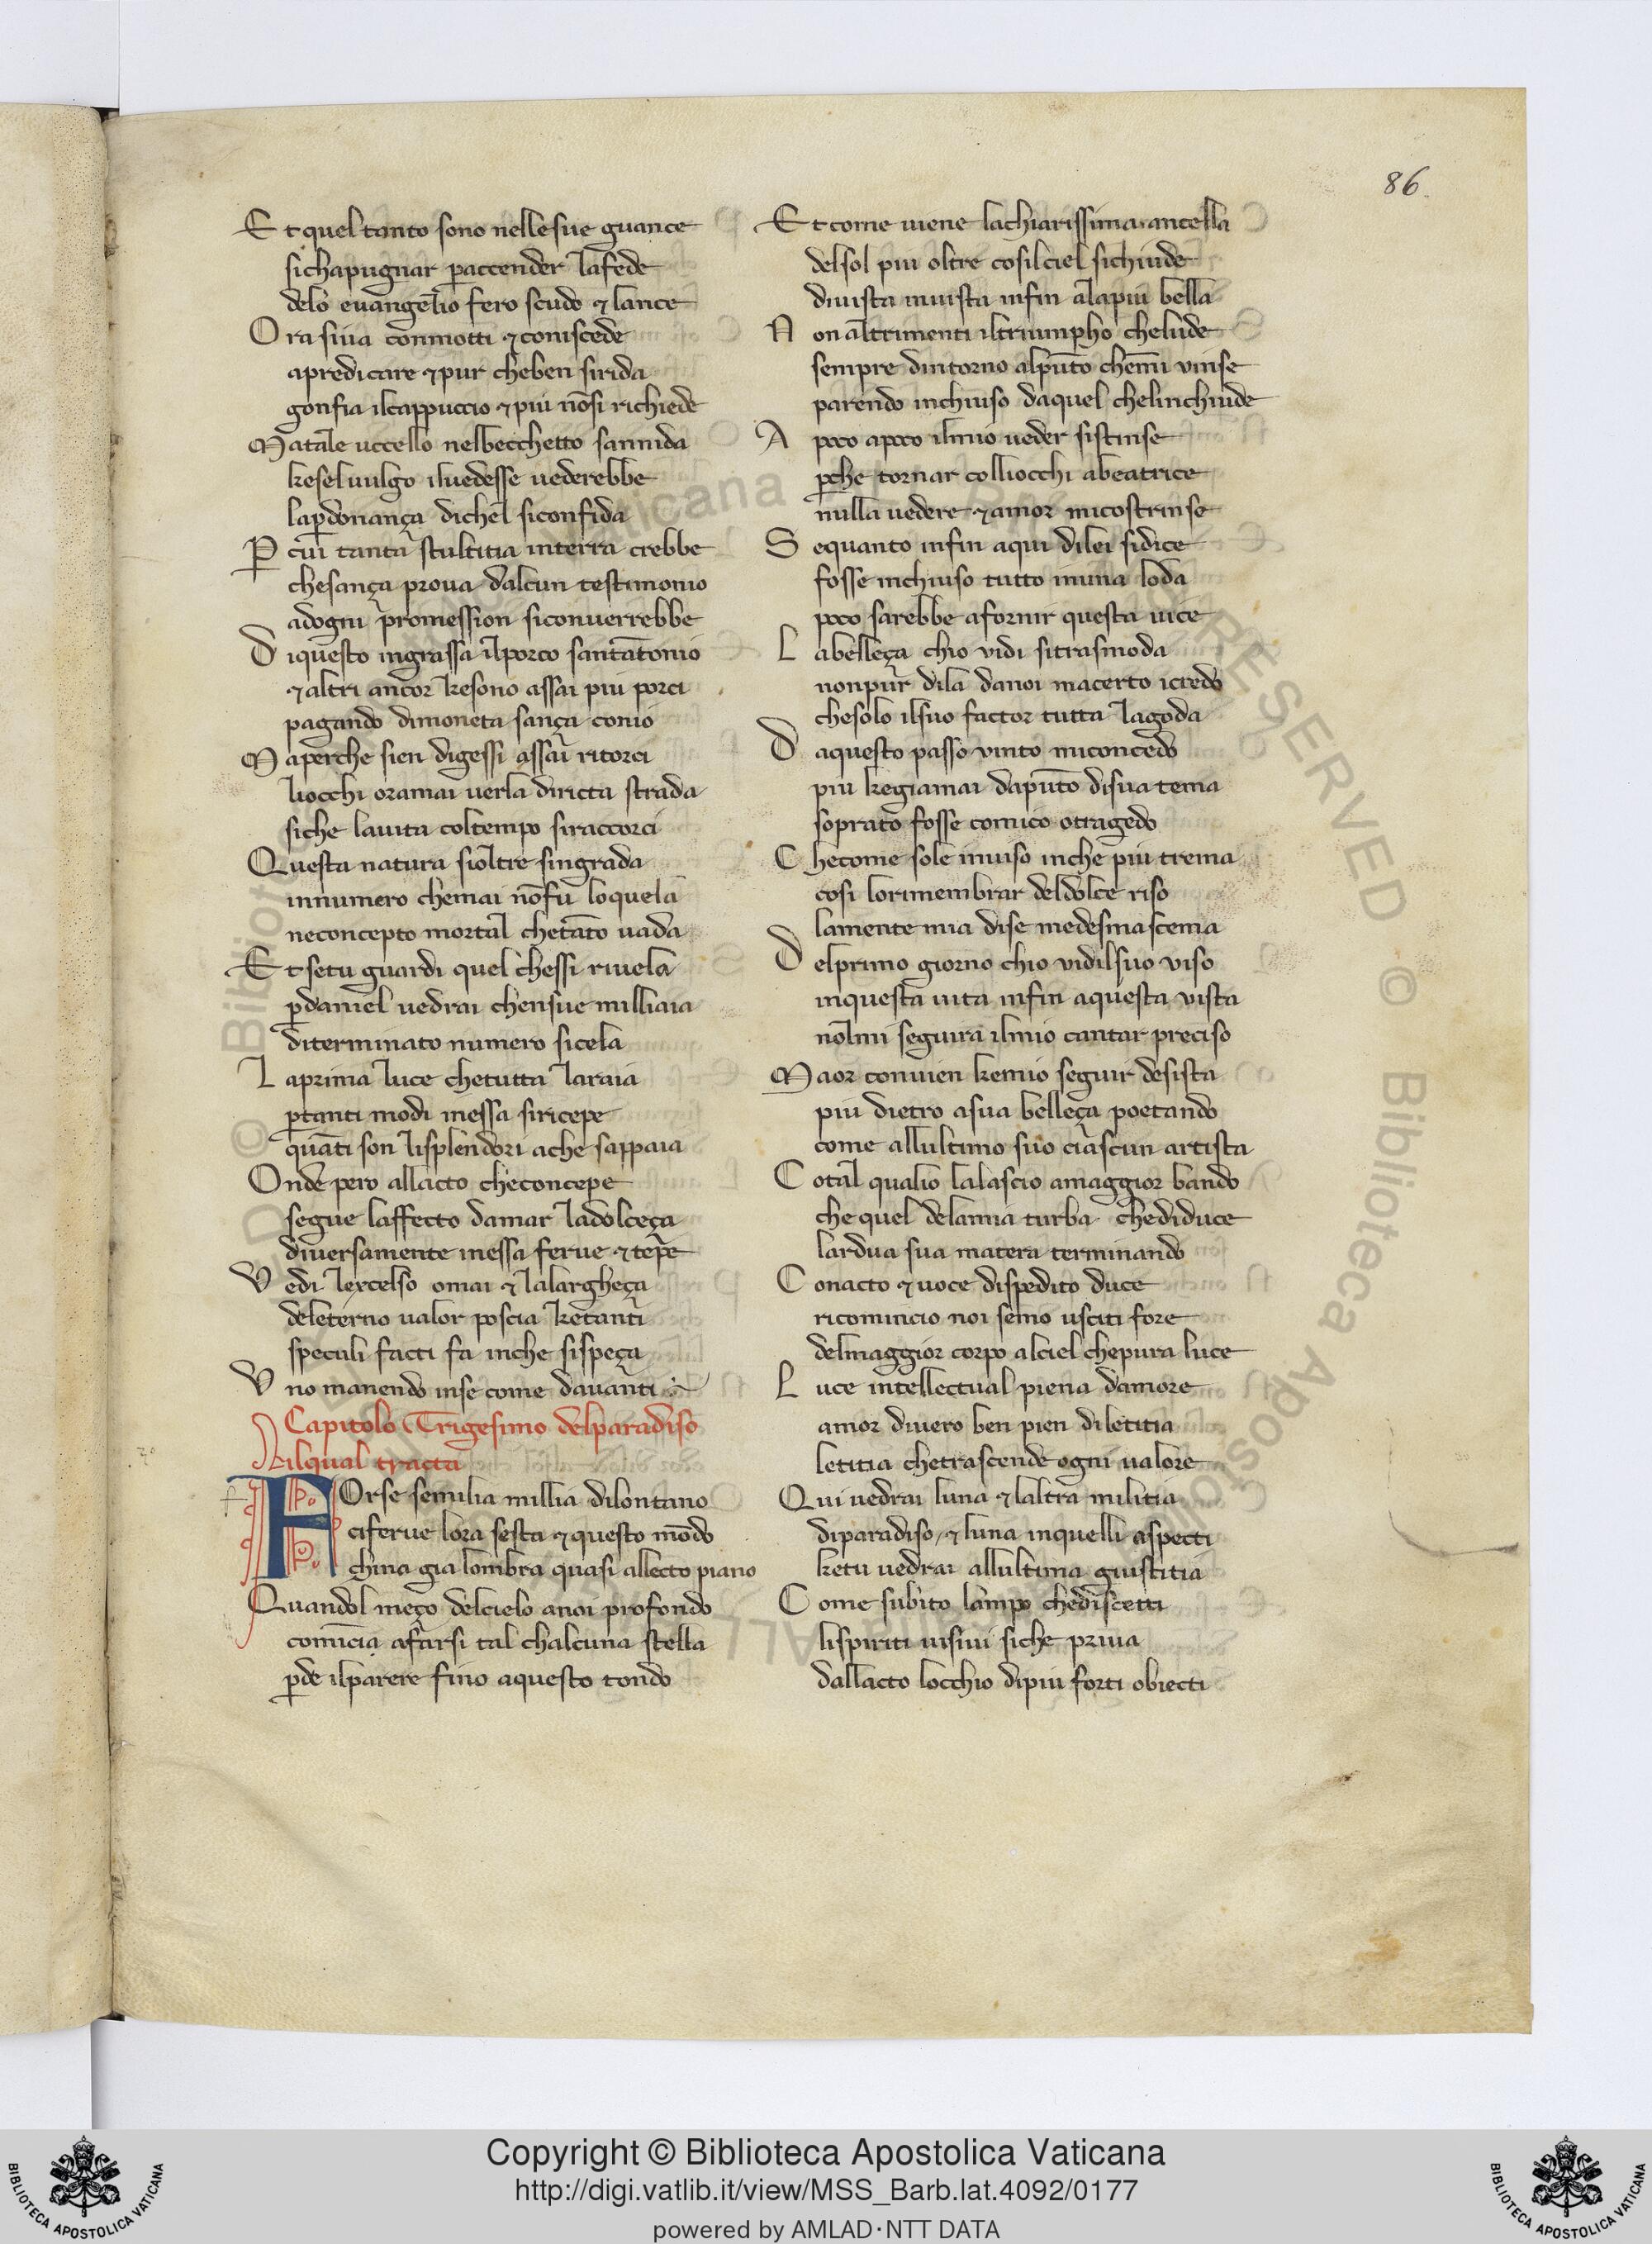 86
Et quel tanto sono nelle sue guance
sichapugnar paccender lafede
delo euangelio fero scudo ⁊ lance
Ora siua conmotti ⁊ coniscede
apredicare ⁊ pur cheben sirida
gonfia ilcappuccio ⁊ piu nōsi richiede
Matale uccello nelbecchetto sannida
keseluulgo iluedesse uederebbe
lapdonança dichel siconfida
P cui tanta stultitia interra crebbe
chesança proua dalcun testimonio
adogni promession siconuerrebbe
Diquesto ingrassa ilporco santātonio
⁊ altri ancor kesono assai piu porci
pagando dimoneta sança conio
Maperche sien digessi assai ritorci
liocchi oramai uerla diricta strada
siche lauita coltempo siraccorci
Questa natura sioltre singrada
innumero chemai nōfu loquela
neconcepto mortal chetāto uada
Et setu guardi quel chessi riuela
pdaniel uedrai chensue milliaia
diterminato numero sicela
Laprima luce chetutta laraia
ptanti modi messa siricepe
quāti son lisplendori ache sappaia
Onde pero allacto checoncepe
segue laffecto damar ladolceça
diuersamente inessa ferue ⁊ tepe
Vedi lexcelso omai ⁊ lalargheça
deleterno ualor poscia ketanti
speculi facti fa inche sispeça
Vno manendo inse come dauanti
Capitolo Trigesimo delparadiso
Nilqual tracta
FOrse semilia millia dilontano
ciferue lora sesta ⁊ questo mōdo
china gia lombra quasi allecto piano
Quandol meço delcielo anoi profondo
comīcia afarsi tal chalcuna stella
pde ilparere fino aquesto fondo
Et come uiene lachiarissima ancella
delsol piu oltre cosilciel sichiude
diuista inuista infin alapiu bella
Non altrimenti iltriumpho chelude
sempre dintorno alpūto chemi vinse
parendo inchiuso daquel chelinchiude
A poco apoco ilmio ueder sistinse
pche tornar colliocchi abeatrice
nulla uedere ⁊ amor micostrinse
Sequanto infin aqui dilei sidice
fosse inchiuso tutto inuna loda
poco sarebbe afornir questa uice
Labelleça chio vidi sitrasmoda
nonpur dila danoi macerto icredo
chesolo ilsuo factor tutta lagoda
Daquesto passo vinto miconcedo
piu kegiamai dapūto disua tema
soprato fosse comico otragedo
Checome sole inuiso inche piu trema
cosi lorimembrar deldolce riso
lamente mia dise medesma scema
Delprimo giorno chio vidilsuo viso
inquesta uita infin aquesta vista
nōlmi seguira ilmio cantar preciso
Maor conuien kemio seguir desista
piu dietro asua belleça poetando
come allultimo suo ciascun artista
Cotal qualio lalascio amaggior bando
che quel delamia turba chediduce
lardua sua matera terminando
Conacto ⁊ uoce dispedito duce
ricomincio noi semo usciti fore
delmaggior corpo alciel chepura luce
Luce intellectual piena damore
amor diuero ben pien diletitia
letitia chetrascende ogni ualore
Qui uedrai luna ⁊ laltra militia
diparadiso / ⁊ luna inquelli aspecti
ketu uedrai allultima giustitia
Come subito lampo chediscetti
lispiriti uisiui siche priua
dallacto locchio dipiu forti obiecti
Copyright © Biblioteca Apostolica Vaticana
http://digi.vatlib.it/view/MSS_Barb.lat.4092/0177
powered by AMLAD·NTT DATA
BIBLIOTECA APOSTOLICA VATICANA
BIBLIOTECA APOSTOLICA VATICANA